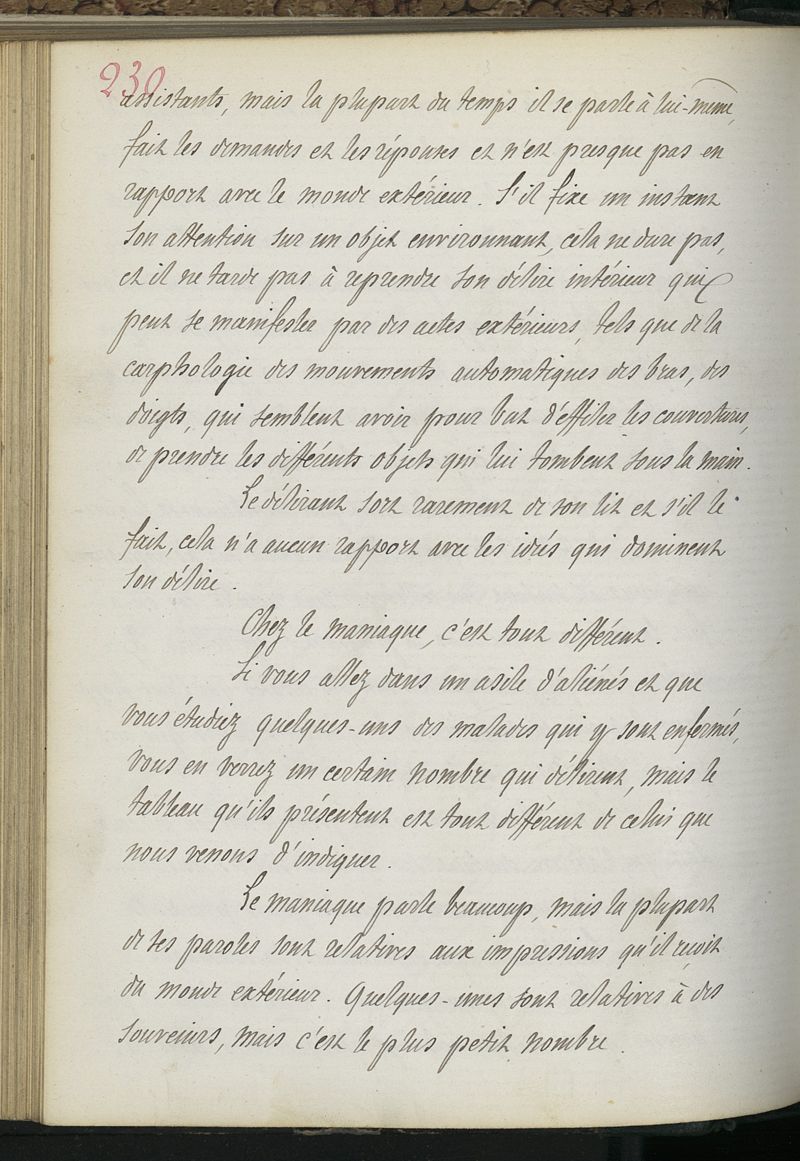 230
assistants, mais la plupart du temps il se parle à lui-même,
fait les demandes et les réponses et n'est presque pas en
rapport avec le monde extérieur. S'il fixe un instant
son attention sur un objet environnant, cela ne dure pas,
et il ne tarde pas à reprendre son délire intérieur qui
peut se manifester par des actes extérieurs, tels que de la
carphologie des mouvements automatiques des bras, des
doigts, qui semblent avoir pour but d'effiler les couvertures,
de prendre les différents objets qui lui tombent sous la main.
Le délirant sort rarement de son lit et s'il le
fait, cela n'a aucun rapport avec les idées qui dominent
son délire.
Chez le maniaque, c'est tout différent.
Si vous allez dans un asile d'aliénés et que
vous étudiez quelques-uns des malades qui y sont enfermés,
vous en verrez un certain nombre qui délirent, mais le
tableau qu'ils présentent est tout différent de celui que
nous venons d'indiquer.
Le maniaque parle beaucoup, mais la plupart
de ses paroles sont relatives aux impressions qu'il reçoit
du monde extérieur. Quelques-unes sont relatives à des
souvenirs, mais c'est le plus petit nombre.